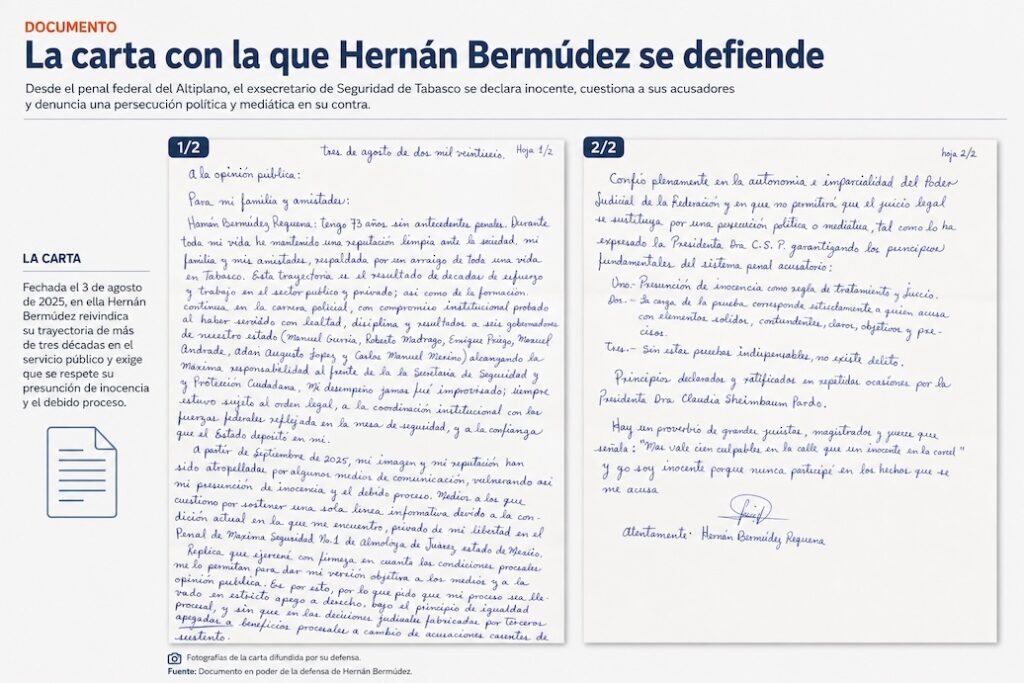 DOCUMENTO
La carta con la que Hernán Bermúdez se defiende
Desde el penal federal del Altiplano, el exsecretario de Seguridad de Tabasco se declara inocente, cuestiona a sus acusadores
y denuncia una persecución política y mediática en su contra.
LA CARTA
Fechada el 3 de agosto
de 2025, en ella Hernán
Bermúdez reivindica
su trayectoria de más
de tres décadas en el
servicio público y exige
que se respete su
presunción de inocencia
y el debido proceso.
1/2
tres de agosto de dos mil Hoja 1/2
A la opinión pública:
Para mi familia y amistades:
Bermúdez Requena: tengo 73 años sin antecedentes penales. Durante
toda mi vida he mantenido una reputación limpia ante la sociedad, mi
familia y mis amistades, respaldada por un arraigo de toda una vida
en Tabasco. Esta trayectoria es el resultado de décadas de esfuerzo
y trabajo en el sector público y privado; así como de la formación.
continua en la carrera policial, con compromiso institucional probado
al haber servido con lealtad, disciplina y resultados a seis gobernadores
de nuestro estado (Manuel Gurria, Roberto Madrazo, Enrique Priego, Manuel
Andrade, adan Augusto Lopez y Carlos Manuel Merino) alcanzando la
Máxima responsabilidad al frente de la la Secretaria de Seguridad y
y Protección Ciudadana, Mi desempeño jamas fué improvisado; siempre
estuvo sujeto al orden legal, a la coordinación institucional con las
fuerzas federales reflejada en la mesa de seguridad, y a la confianza
que el Estado depositó en mi.
A partir de Septiembre de 2025, mi imagen y mi reputación han
sido atropelladas por algunos medios de comunicación, vulnerando asi
mi presunción de inocencia y el debido proceso. Medios a los que
cuestiono por sostener una sola linea informativa devido a la con-
dición actual en la que me encuentro, privado de mi libertad en el
Penal de Maxima Seguridad No.1 de Almoloya de Juárez, estado de Mexico.
Replica que ejerceré con firmeza en cuanto las condiciones procesales
me lo permitan para dar mi versión objetiva a los medios y a la
opinión publica. Es por esto, por lo que pido que mi proceso sea lle-
vado en estricto apego a derecho, bajo el principio de igualdad
procesal, y sin que en las decisiones judiciales fabricadas por Terceros
apegadas a beneficios procesales a cambio de acusaciones carentes de
sustento.
2/2
hoja 2/2
Confio plenamente en la autonomia e imparcialidad del Poder
Judicial de la Federación y en que no permitirá que el juicio legal
se sustituya por una persecución politica o mediatica, tal como lo ha
expresado la Presidenta Dra C.S.P. garantizando los principios
fundamentales del sistema penal acusatorio:
Uno.- Presunción de inocencia como regla de tratamiento y Juicio.
Dos.- la carga de la prueba corresponde estrictamente a quien acusa
con elementos solidos, contundentes, claros, objetivos y pre-
cisos.
Tres.- Sin estas pruebas indispensables, no existe delito.
Principios declarados y ratificados en repetidas ocasiones por la
Presidenta Dra Claudia Sheimbaum Pardo.
Hay un proverbio de grandes juristas, magistrados y jueces que
señala: "Mas vale cien culpables en la calle que un inocente en la carcel"
y yo soy inocente porque nunca participé en los hechos que se
me acusa
Atentamente: Hernán Bermúdez Requena
Fotografías de la carta difundida por su defensa.
Fuente: Documento en poder de la defensa de Hernán Bermúdez.